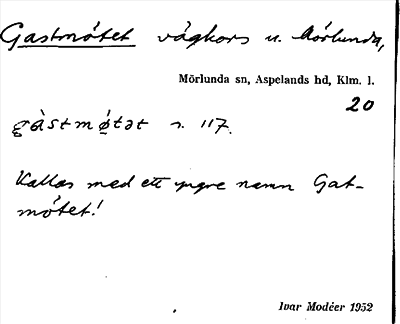 Gastmötet vägkors u. Mörlunda,
Mörlunda sn, Aspelands hd, Klm. l.
20
gàstmǿtət s. 117.
Kallas med ett yngre namn Gat-
mötet!
Ivar Modéer 1952